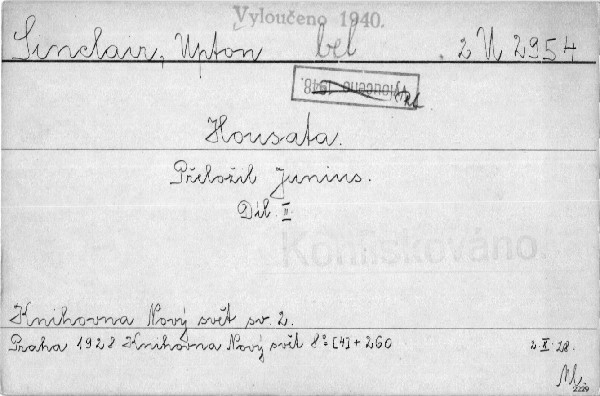 Vyloučeno 1940.
Sinclair, Upton bel 2 U 2954
Vyloučeno 1948.
Housata.
Přeložil Junius.
Díl. II.
Konfiskováno.
Knihovna Nový svět sv. 2.
Praha 1928 Knihovna Nový svět 8° [4] + 260 2. X. 28.